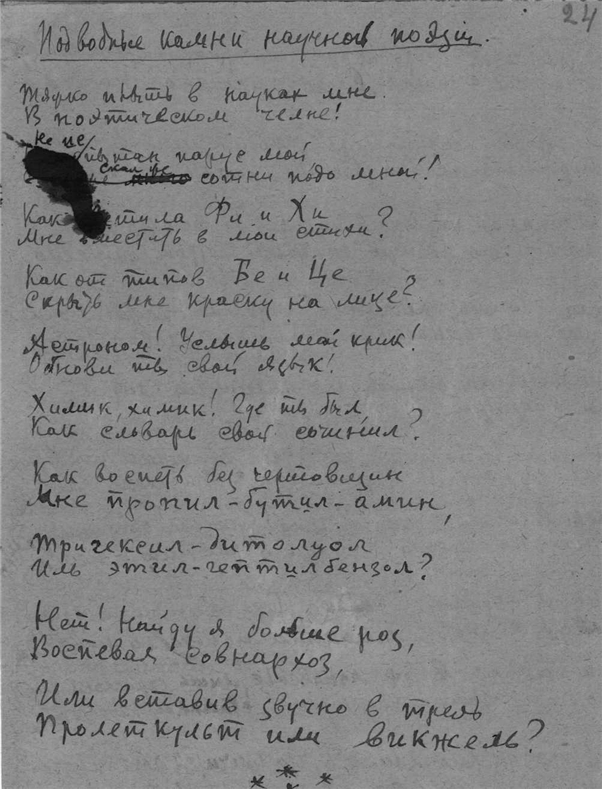 24
Подводные камни научной поэзии.
Жярко плыть в науках мне
В поэтическом челне!
Не це
парус мой
скал сотни подо мной!
Как Фи и Хи
Мне вместить в мои стихи?
Как от типов Бе и Це
Скрыть мне краску на лице?
Астроном! Услышь мой крик!
Обнови ты свой язык!
Химик, химик! Где ты был,
Как словарь свой сочинил?
Как воспеть без чертовщин
Мне пропил-бутил-амин,
Тригексил-битолуол
Иль этил-гептилбензол?
Нет! Найду я больше роз,
Воспевая совнархоз,
Или вставив звучно в трель
Пролеткульт или викжель?
* * *